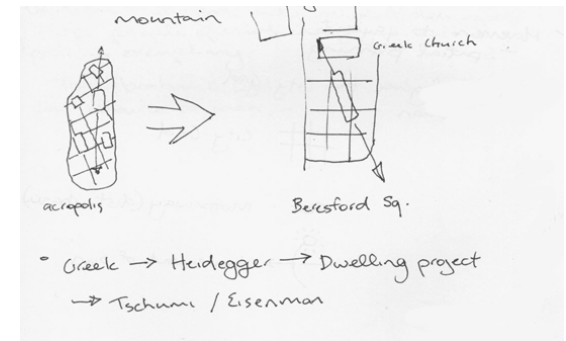 mountain
Greek Church
acropolis
Beresford Sq.
• Greek → Heidegger → Dwelling project
→ Tschumi / Eisenman